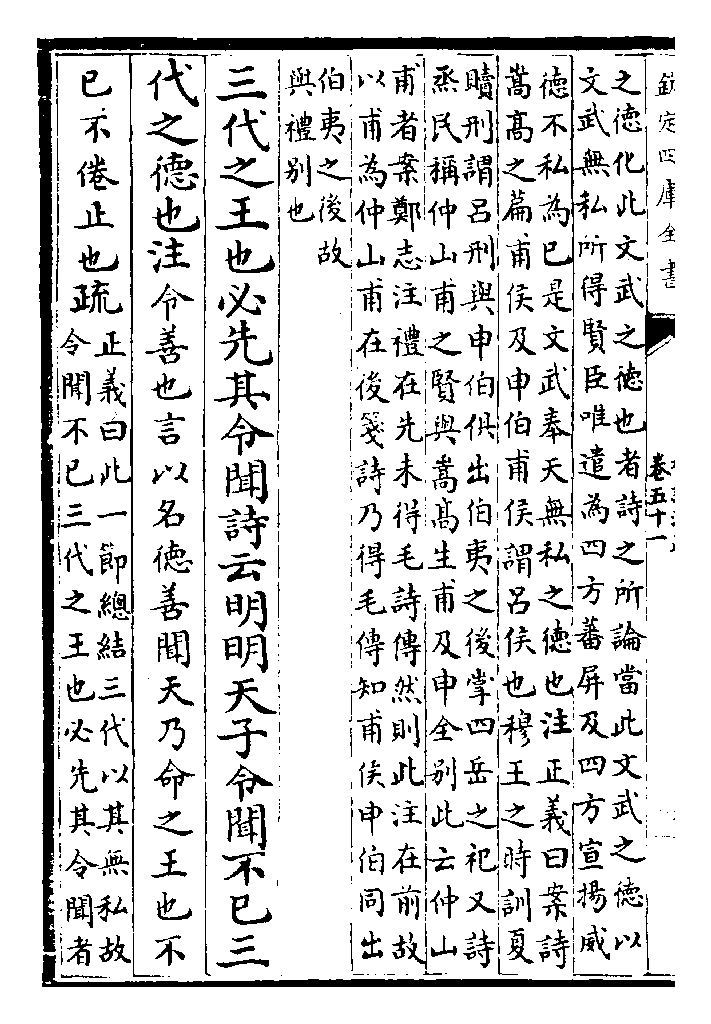 欽定四庫全書
卷五十一
之德化此文武之德也者詩之所論當此文武之德以
文武無私所得賢臣唯遣為四方蕃屏及四方宣揚威
德不私為已是文武奉天無私之德也注正義曰案詩
嵩髙之篇甫侯及申伯甫侯謂呂侯也穆王之時訓夏
贖刑謂呂刑與申伯俱出伯夷之後掌四岳之祀又詩
烝民稱仲山甫之賢與嵩髙生甫及申全别此云仲山
甫者案鄭志注禮在先未得毛詩傳然則此注在前故
以甫為仲山甫在後箋詩乃得毛傳知甫侯申伯同出
伯夷之後故
與禮别也
三代之王也必先其令聞詩云明明天子令聞不已三
代之德也注令善也言以名德善聞天乃命之王也不
已不倦止也疏
正義曰此一節總結三代以其無私故
令聞不已三代之王也必先其令聞者